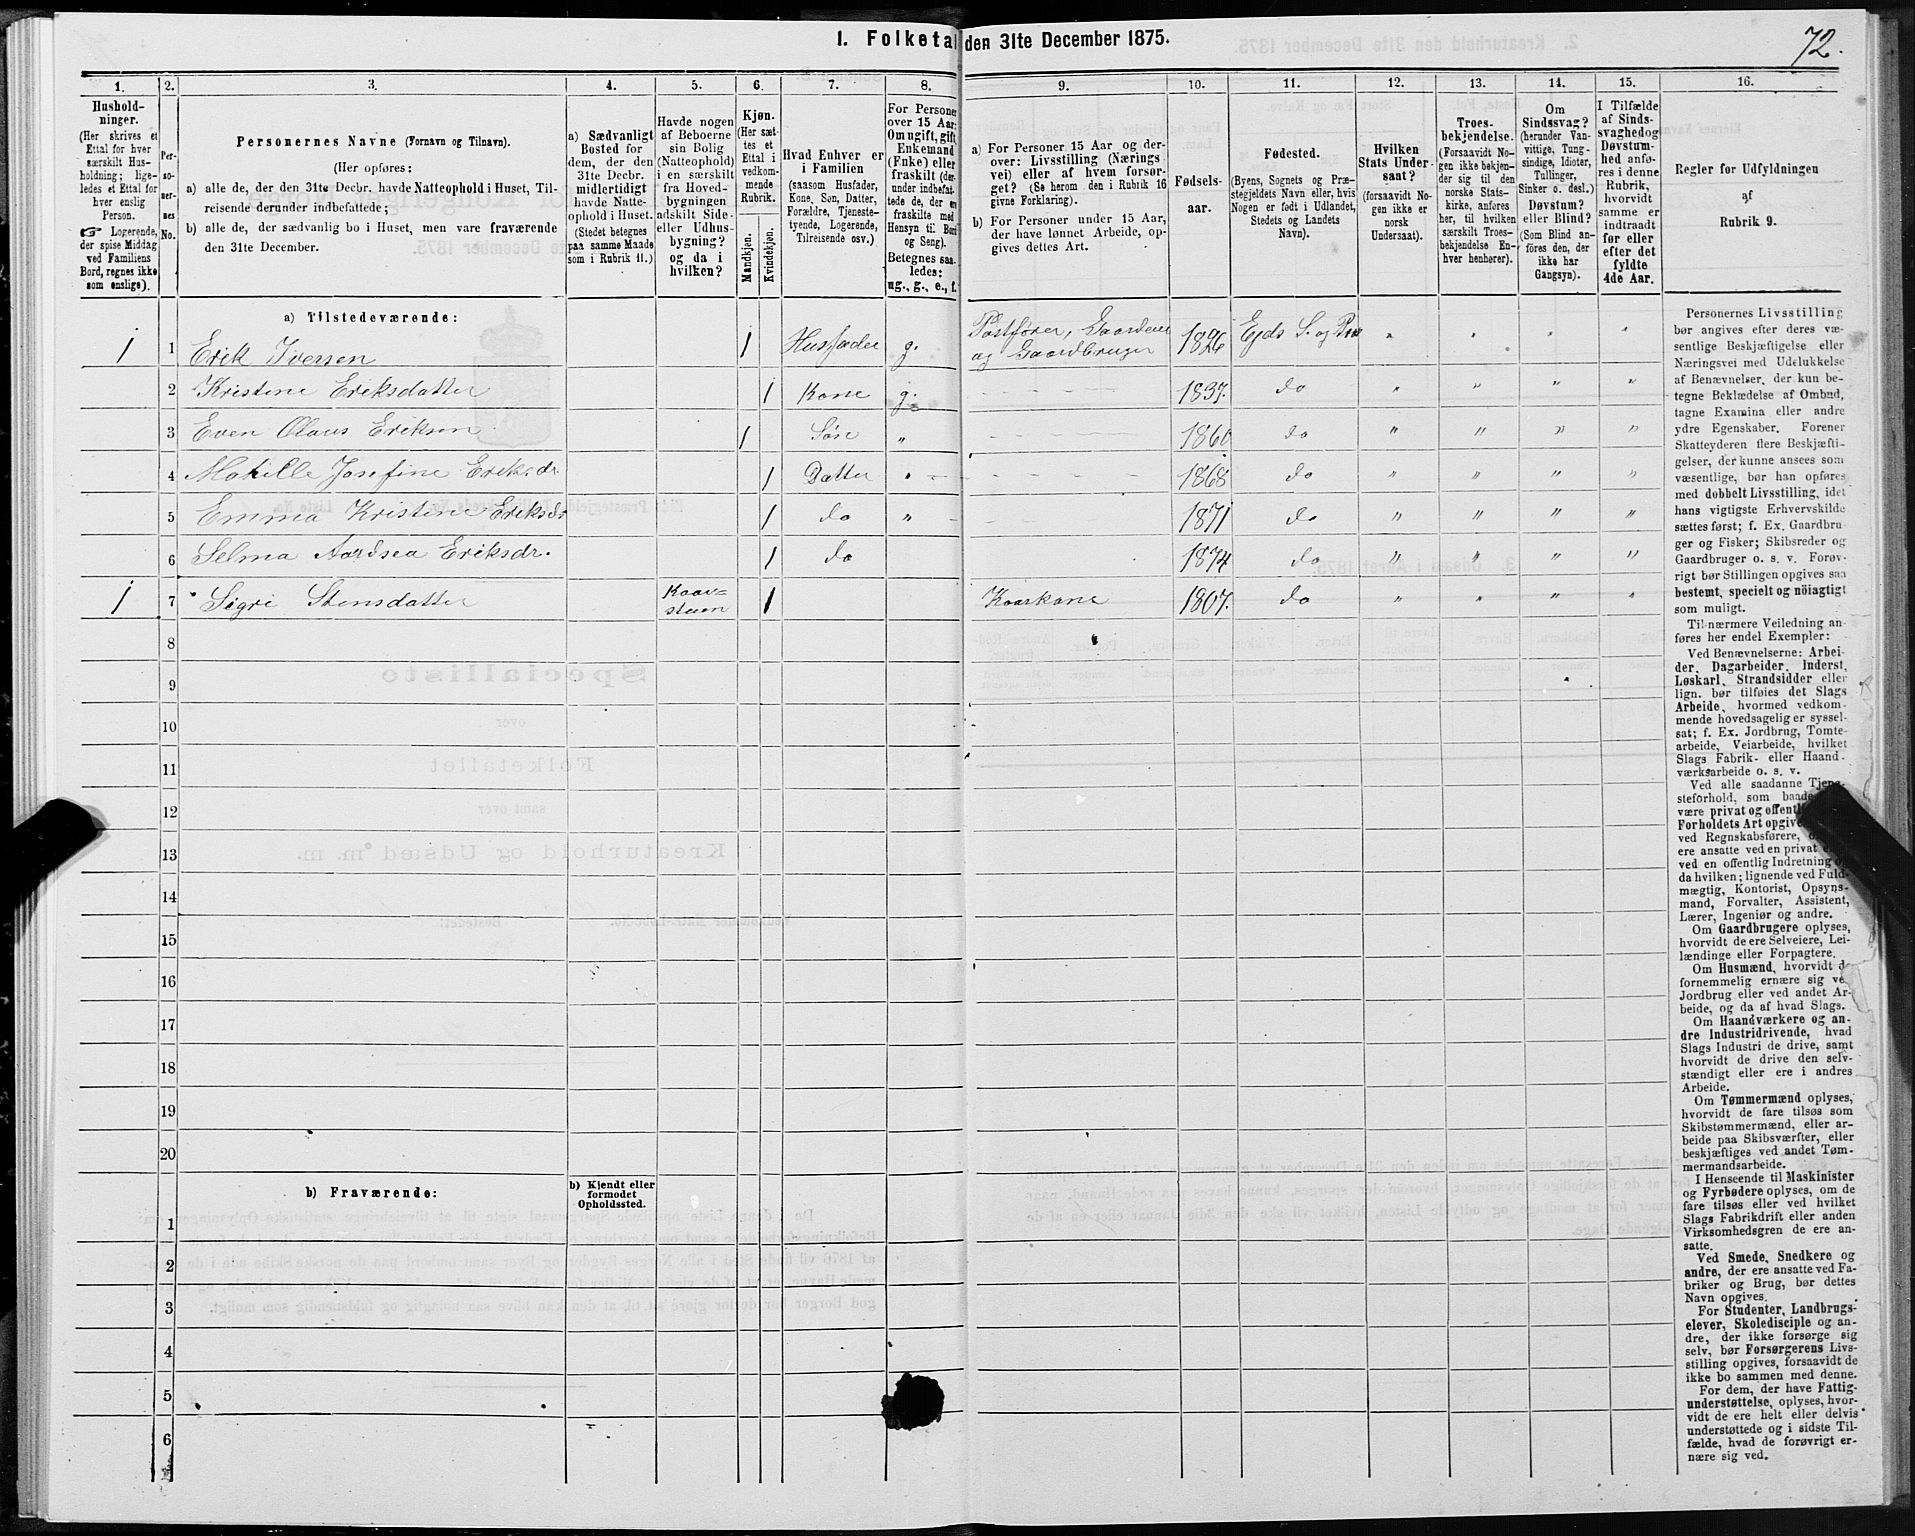 1. Folketal den 31te December 1875.
72.
1.
Hushold-
ninger.
(Her skrives et
Ettal for hver
særskilt Hus-
holdning; lige-
ledes et Ettal for
hver enslig
Person.
☞ Logerende,
der spise Middag
ved Familiens
Bord, regnes ikke
som enslige).
2.
Per-
so-
ner-
nes
No.
3.
Personernes Navne (Fornavn og Tilnavn).
(Her opføres:
a) alle de, der den 31te Decbr. havde Natteophold i Huset, Til-
reisende derunder indbefattede;
b) alle de, der sædvanlig bo i Huset, men vare fraværende
den 31te December.
4.
a) Sædvanligt
Bosted for
dem, der den
31te Decbr.
midlertidigt
havde Natte-
ophold i Huset.
(Stedet betegnes
paa samme Maade
som i Rubrik 11.)
5.
Havde nogen
af Beboerne
sin Bolig
(Natteophold)
i en særskilt
fra Hoved-
bygningen
adskilt Side-
eller Udhus-
bygning?
og da i
hvilken?
6.
Kjøn.
(Her sæt-
tes et
Ettal i
vedkom-
mende
Rubrik.
Mandkjøn.
Kvindekjøn.
7.
Hvad Enhver er
i Familien
(saasom Husfader,
Kone, Søn, Datter,
Forældre, Tjeneste-
tyende, Logerende,
Tilreisende osv.)
8.
For Personer
over 15 Aar:
Om ugift, gift,
Enkemand
(Enke) eller
fraskilt (der-
under indbefat-
tede de, der ere
fraskilte med
Hensyn til Bord
og Seng).
Betegnes saa-
ledes:
ug., g., e., f.
9.
a) For Personer 15 Aar og der-
over: Livsstilling (Nærings-
vei) eller af hvem forsør-
get? (Se herom den i Rubrik 16
givne Forklaring).
b) For Personer under 15 Aar,
der have lønnet Arbeide, op-
gives dettes Art.
10.
Fødsels-
aar.
11.
Fødested.
(Byens, Sognets og Præ-
stegjeldets Navn eller, hvis
Nogen er født i Udlandet,
Stedets og Landets
Navn).
12.
Hvilken
Stats Under-
saat?
(forsaavidt No-
gen ikke er
norsk
Undersaat).
13.
Troes-
bekjendelse.
(Forsaavidt No-
gen ikke bekjen-
der sig til den
norske Stats-
kirke, anføres
her, til hvilken
særskilt Troes-
bekjendelse En-
hver henhører).
14.
Om
Sindssvag?
(herunder Van-
vittige, Tung-
sindige, Idioter,
Tullinger,
Sinker o. desl.)
Døvstum?
eller Blind?
(Som Blind an-
føres den, der
ikke har
Gangsyn).
15.
I Tilfælde
af Sinds-
svaghed og
Døvstum-
hed anfø-
res i denne
Rubrik,
hvorvidt
samme er
indtraadt
før eller
efter det
fyldte
4de Aar.
16.
Regler for Udfyldningen
af
Rubrik 9.
a) Tilstedeværende:
1 1 Erik Iversen 1 Husfader g. Postfører, Gaardeier og Gaardbruger 1826 Ejds S. og Præ " " " "
2 Kristine Eriksdatter 1 Kone g. 1837. do " " " "
3 Even Olaus Eriksen 1 Søn " 1860 do " " " "
4 Matille Josefine Eriksdr. 1 Datter " 1868 do " " " "
5 Emma Kristine Eriksdr 1 do " 1871 do " " " "
6 Selma Eriksdr. 1 do 1874 do " " " "
1 7 Sigri Stensdatter Kaar-
stuen 1 Kaarkone 1807. do " " " "
8
9
10
11
12
13
14
15
16
17
18
19
20
b) Fraværende:
b) Kjendt eller
formodet
Opholdssted.
1
2
3
4
5
6
Personernes Livsstilling
bør angives efter deres væ-
sentlige Beskjæftigelse eller
Næringsvei med Udelukkelse
af Benævnelser, der kun be-
tegne Beklædelse af Ombud,
tagne Examina eller andre
ydre Egenskaber. Forener
Skatteyderen flere Beskjæfti-
gelser, der kunne ansees som
væsentlige, bør han opføres
med dobbelt Livsstilling, idet
hans vigtigste Erhvervskilde
sættes først; f. Ex. Gaardbru-
ger og Fisker; Skibsreder og
Gaardbruger o. s. v. Forøv-
rigt bør Stillingen opgives saa
bestemt, specielt og nöiagtigt
som muligt.
Til nærmere Veiledning an-
føres her endel Exempler:
Ved Benævnelserne: Arbei-
der, Dagarbeider, Inderst,
Løskarl, Strandsidder eller
lign. bør tilføies det Slags
Arbeide, hvormed vedkom-
mende hovedsagelig er syssel-
sat; f. Ex. Jordbrug, Tomte-
arbeide, Veiarbeide, hvilket
Slags Fabrik- eller Haand-
værksarbeide o. s. v.
Ved alle saadanne Tjene-
steforhold, som baade
være privat og offentl
Forholdets Art opgive
ved Regnskabsførere,
ere ansatte ved en privat
ved en offentlig Indretning
da hvilken; lignende ved Fuld-
mægtig, Kontorist, Opsyns-
mand, Forvalter, Assistent,
Lærer, Ingeniør og andre.
Om Gaardbrugere oplyses,
hvorvidt de ere Selveiere, Lei-
lændinge eller Forpagtere.
Om Husmænd, hvorvidt de
fornemmelig ernære sig ved
Jordbrug eller ved andet Ar-
beide, og da af hvad Slags.
Om Haandværkere og an-
dre Industridrivende, hvad
Slags Industri de drive, samt
hvorvidt de drive den selv-
stændigt eller ere i andres
Arbeide.
Om Tømmermænd oplyses,
hvorvidt de fare tilsøs som
Skibstømmermænd, eller ar-
beide paa Skibsværfter, eller
beskjæftiges ved andet Tøm-
mermandsarbeide.
I Henseende til Maskinister
og Fyrbødere oplyses, om de
fare tilsøs eller ved hvilket
Slags Fabrikdrift eller anden
Virksomhedsgren de ere an-
satte.
Ved Smede, Snedkere og
andre, der ere ansatte ved Fa-
briker og Brug, bør dettes
Navn opgives.
For Studenter, Landbrugs-
elever, Skoledisciple og an-
dre, der ikke forsørge sig
selv, bør Forsørgerens Livs-
stilling opgives, forsaavidt de
ikke bo sammen med denne.
For dem, der have Fattig-
understøttelse, oplyses, hvor-
vidt de ere helt eller delvis
understøttede og i sidste Til-
fælde, hvad de forøvrigt er-
nære sig ved.